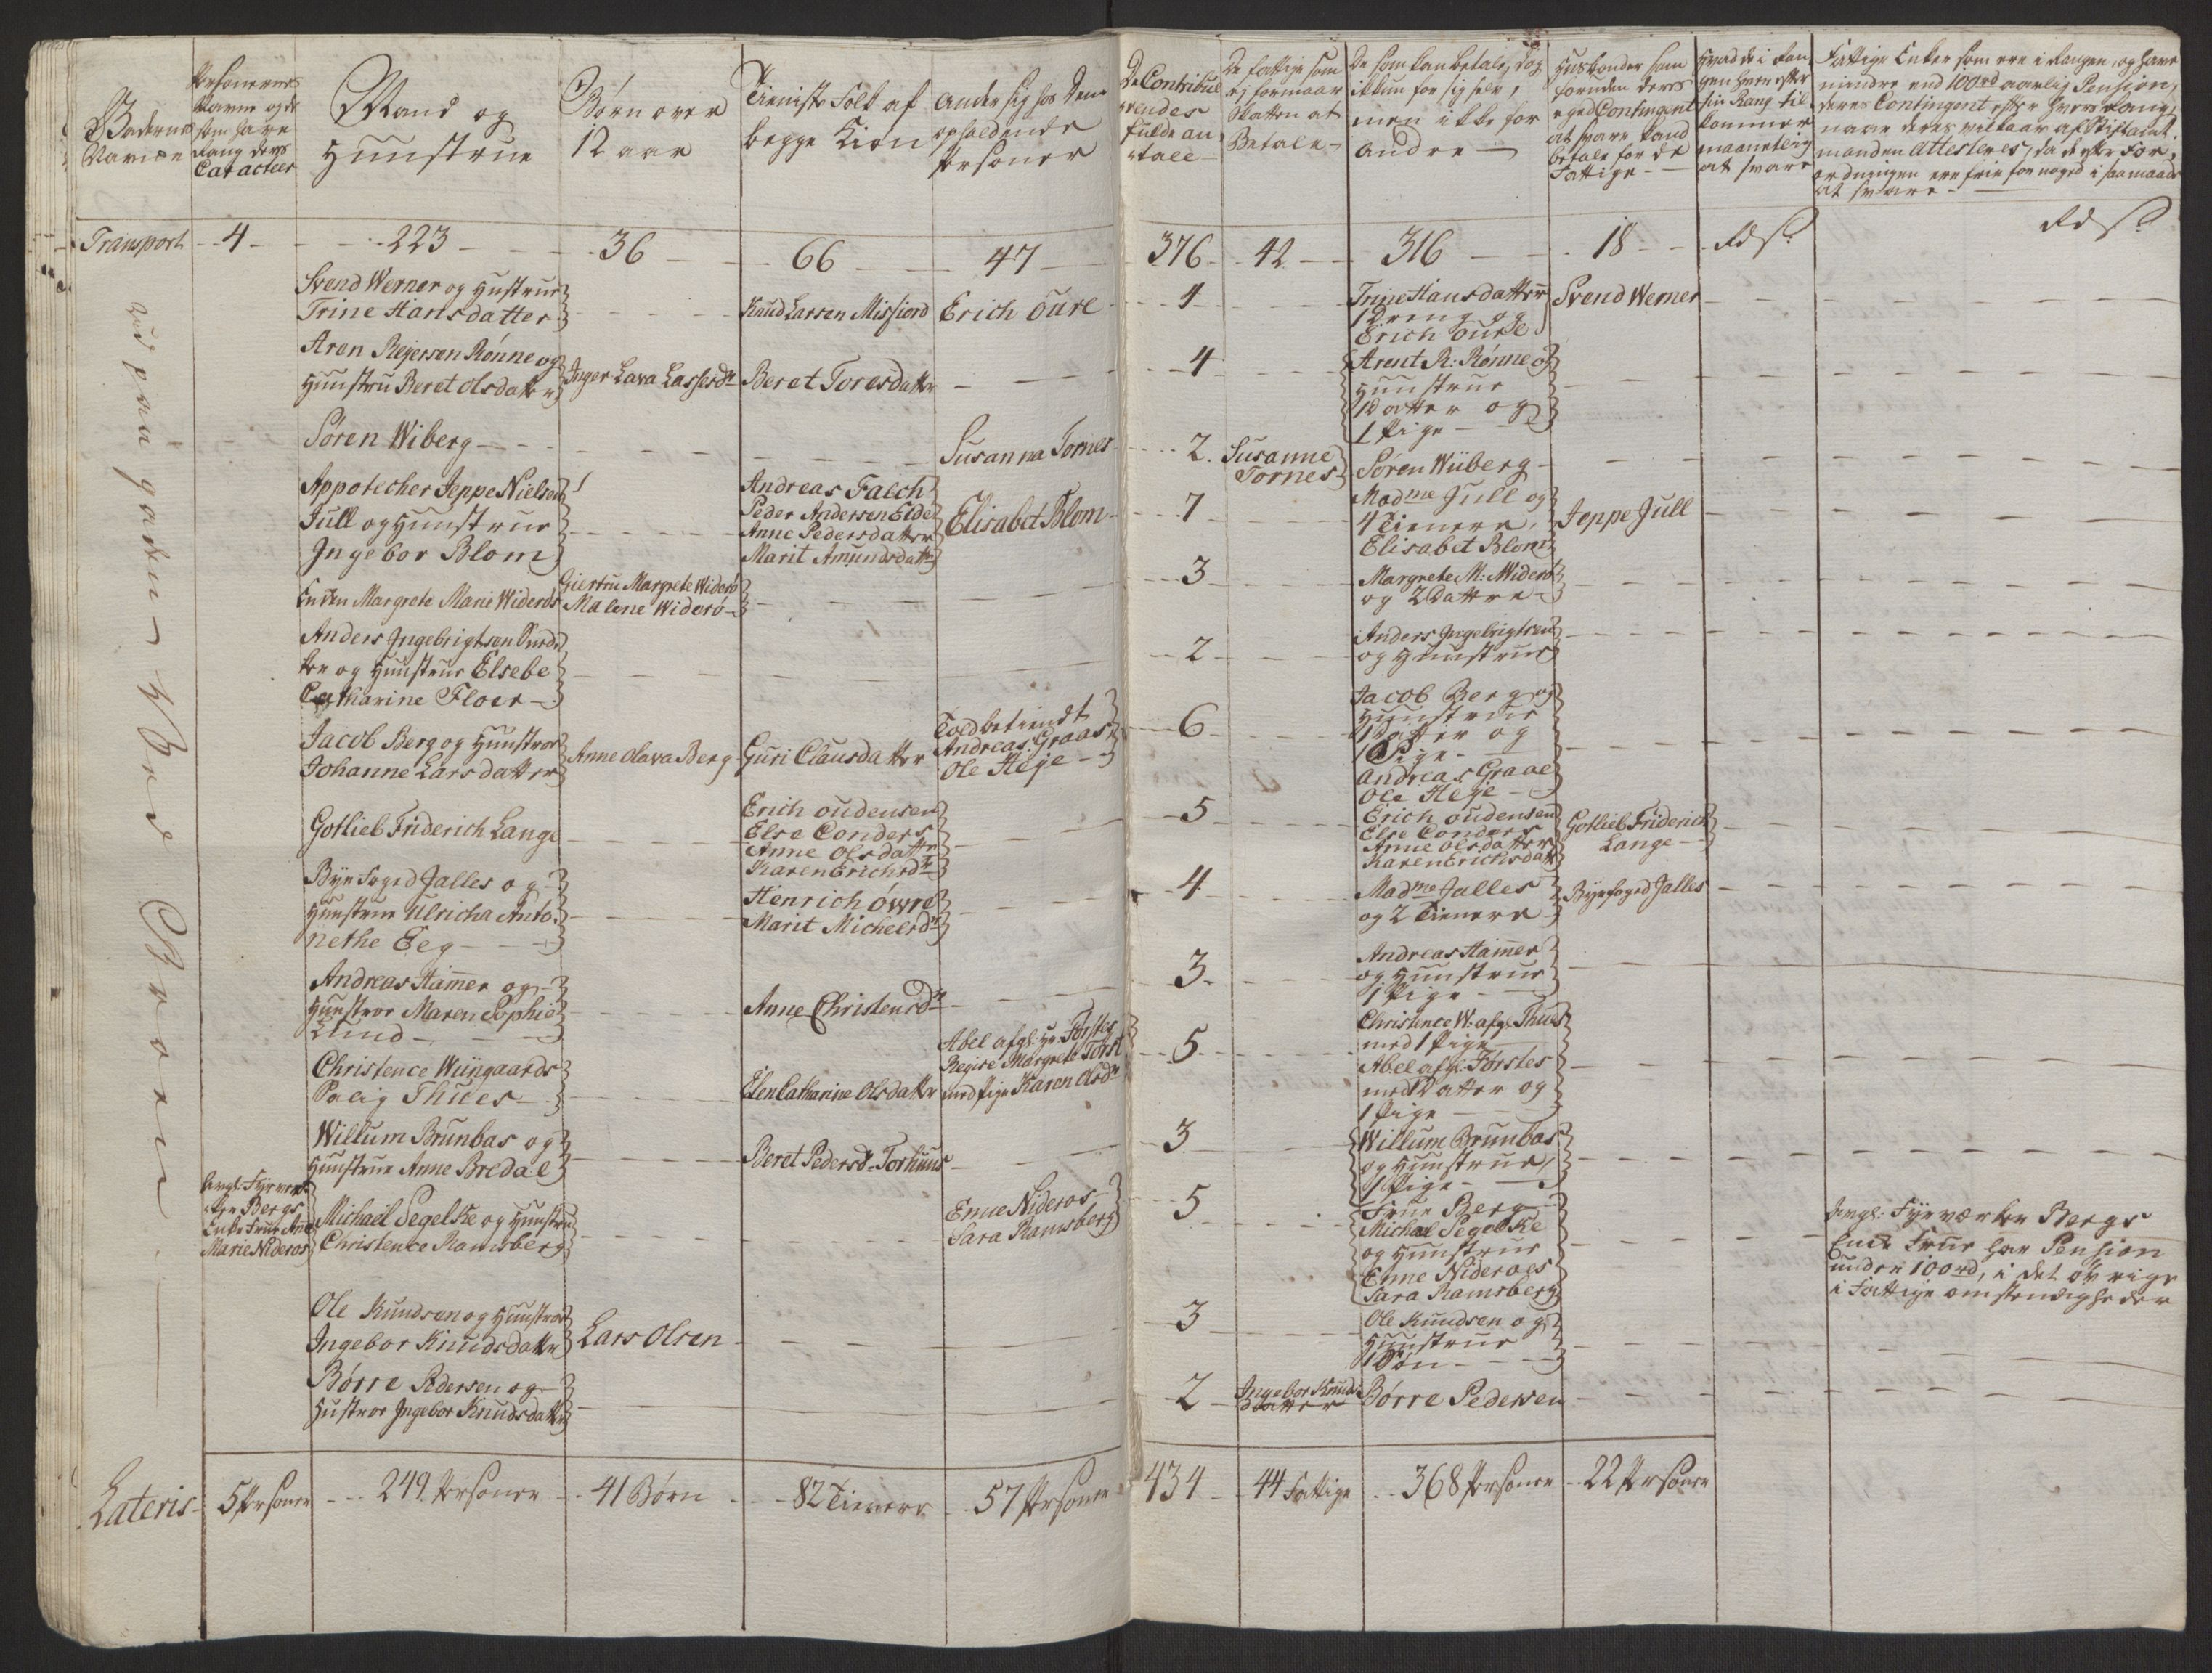 Gadernes
Navne
Personernes
Navne og de
som have
Rang ders
Caracteer
Mand og
Hunstrue
Børn over
12 aar
Tieniste Folk af
begge Kiøn
andre sig hos dem
opholdende
Personer
De Contribue
rendes
fulde an
tall
De fattige som
ej formaar
Skatten at
Betale
De som kan betale, dog
ikkun for sig selv,
men ikke for
andre
Husbonder som
foruden deres
eged Contingent
at svare kand
betale for de
Fattige
Hvad de i Ran
gen hver efter
sin Rang til
kommer
maanetlig
at svare
Fattige Enker som ere i Rangen, og have
mindre end 100 rd aarlig Pension,
deres Contingent efter hvers Rang,
naar deres vilkaar af Stiftamt
manden Attesteres, da de efter For
ordningen ere frie for noged i saa maade
at svare
Transport 4 223 36 66 47 376 42 316 18 Rd s. Rd s.
Svend Werner og Hustrue
Trine Hansdatter
Knud Larsen Misfiord
Erich Oure
4
Trine Hansdatter
1 Dreng og
Erich Oure
Svend Werner
Aren Rejersen Rønne og
Hunstru Beret Olsdatter
Inger Lava Lassesdr
Beret Toresdatter
4
Arent R: Rønne og
Hunstrue
1 Datter og
1 Pige
Søren Wiberg
Susanna Tornes
2
Susanne
Tornes
Søren Wiiberg
Appotecher Jeppe Nielsen
Jull og Hunstrue
Ingebor Blom
Andreas Falch
Peder Andersen Eide
Anne Pedersdatter
Marit Amundsdatter
Elisabet Blom
7
Madme Jull og
4 Tienere,
Elisabet Blom
Jeppe Jull
Enken Margrete Marie Widerøs
Giertru Margrete Widerø
Malene Widerø
3
Margrete M: Widerø
og 2 Dattre
Anders Ingebrigtsen
og Hunstrue Elsebe
Catharine Floer
2
Anders Ingebrigtsen
og Hunstrue
Jacob Berg og Hunstroe
Johanne Larsdatter
Anne Olava Berg
Guri Clausdatter
Toldbetiendt
Andreas Graae
Ole Heje
6
Jacob Berg og
Hunstrue
1 Datter og
1 Pige
Andreas Graae
Ole Heje
Gotlieb Friderich Lange
Erich Oudensen
Else Conders
Anne Olsdatter
Karen Erichsdr
5
Erich Oudensen
Else Conders
Anne Olsdatter
Karen Erichsdatt
Gotlieb Friderich
Lange
Byefoged Jalles og
Hunstrue Ulricha Anto:
nethe Eeg
Henrich Øwre
Marit Michelsdr
4
Madme Jalles
og 2 Tienere
Byefoged Jalles
Andreas Hamer og
Hunstroe Maren Sophie
Lund
Anne Christensdr
3
Andreas Hamer
og Hunstrue
1 Pige
Christence Wiingaards
Salig Thues
Elen Catharine Olsdatter
Abel afgl: Hr: Førstes
Regise Margrete Først
med Pige Karen Olsdr
5
Christence W: afgl: Thues
med 1 Pige
Abel afgl: Førstes
med 1 Datter og
1 Pige
Willum Brunbas og
Hunstrue Anne Bredal
Beret Pedersdr Torhuus
3
Willum Brunbas
og Hunstrue
1 Pige
Avgl: Fyrverk
ker Bergs
Enke Frue Ane
Marie Nideros
Michael Segelke og Hunstrue
Christence Ramsberg
Enne Nideros
Sara Ramsberg
5
Frue Berg
Michael Segelke
og Hunstrue
Enne Nideroes
Sara Ramsberg
Avgl: Fyrværker Bergs
Enke Frue har Pension
under 100 rd, i det øvrige
i Fattige omstendigheder
Ole Knudsen og Hunstroe
Ingebor Knudsdatter
Lars Olsen
3
Ole Knudsen og
Hunstrue
1 Søn
Børre Pedersen og
Hustroe Ingebor Knudsdatter
2
Ingebor Knuds
datter
Børre Pedersen
Lateris 5 Personer 249 Personer 41 Børn 82 Tienere 57 Personer 434 44 Fattige 368 Personer 22 Personer